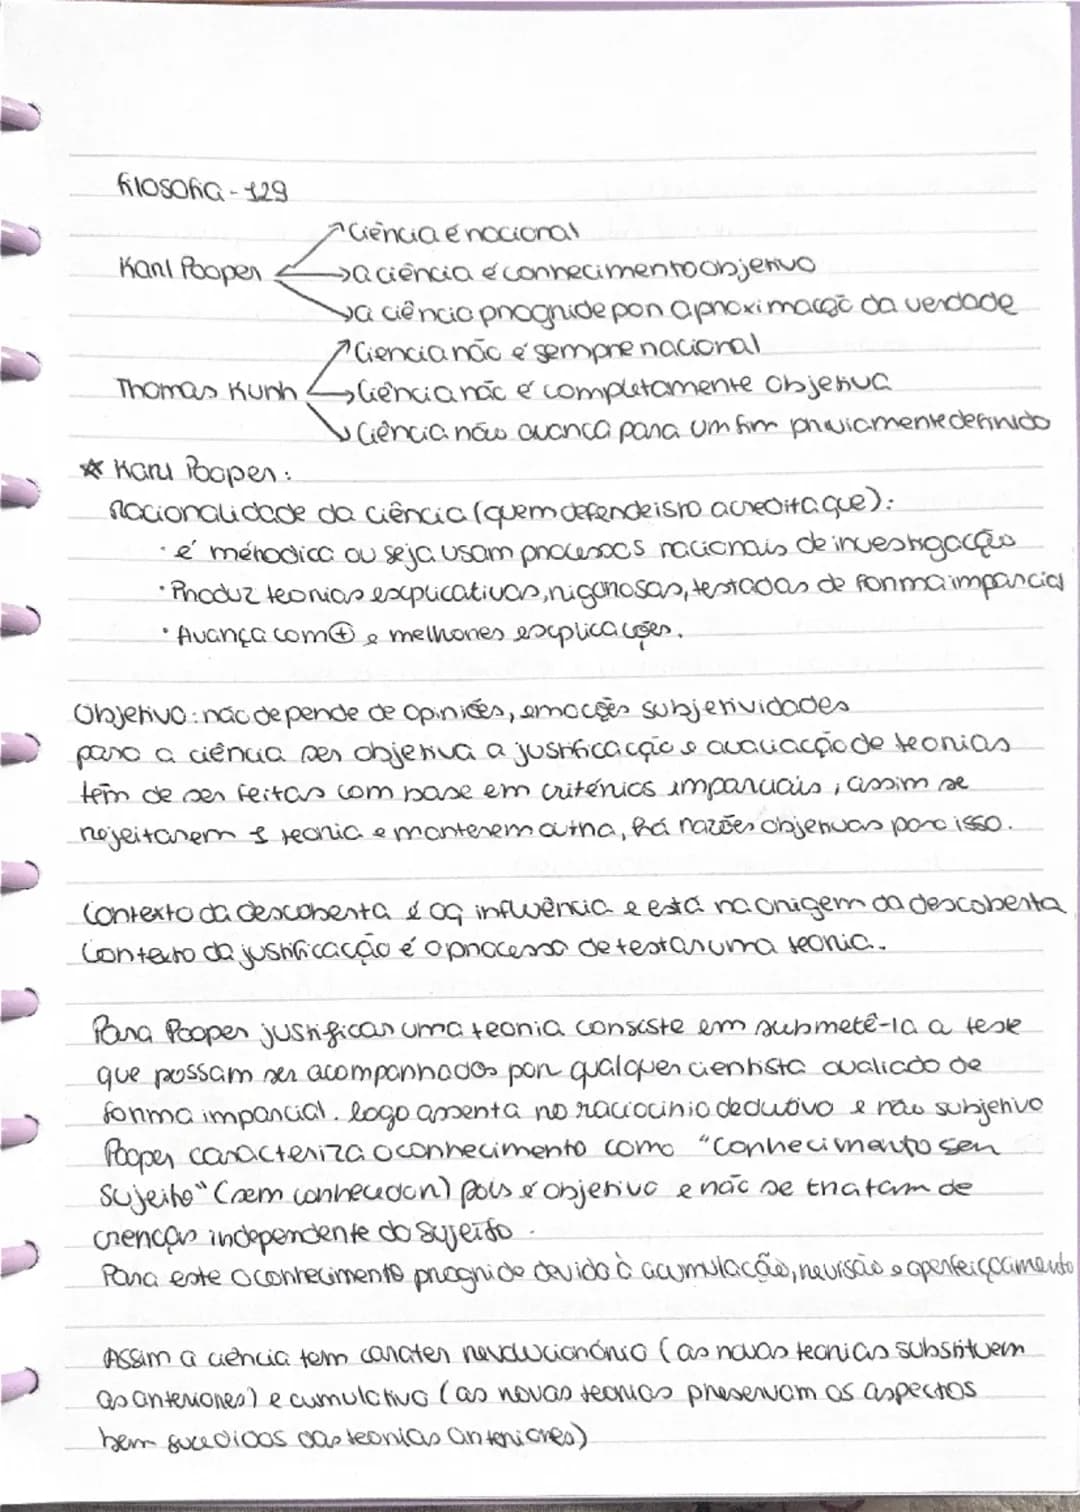 filosofia - 129
↗ Ciência é racional
Karl Pooper → a ciência é conhecimento objetivo
↘ a ciência progride por aproximação da verdade
↗ Ciencia não é sempre racional
Thomas Kunh → Ciência não é completamente objetiva
↘ Ciência não avança para um fim previamente definido
☆ Karl Pooper:
Racionalidade da ciência (quem defende isto acredita que):
· é métodica ou seja usam processos racionais de investigacção
· Produz teorias explicativas, rigorosas, testadas de forma imparcial
· Avança com ⊕ e melhores explicações.
Objetivo: não depende de opiniões, emoções subjetividades
para a ciência ser objetiva a justificacção e avaliacção de teorias
têm de ser feitas com base em critérios imparciais, assim se
rejeitarem 1 teoria e manterem outra, há razões objetivas para isso.
Contexto da descoberta é oq influência e está na origem da descoberta
Contexto da justificacção é o processo de testar uma teoria.
Para Pooper justificar uma teoria consiste em submetê-la a teste
que possam ser acompanhados por qualquer cientista avaliado de
forma imparcial. logo assenta no raciocínio dedutivo e não subjetivo
Pooper caracteriza o conhecimento como "Conhecimento sem
Sujeito" (sem conhecedor) pois é objetivo e não se tratam de
crenças independente do sujeito.
Para este o conhecimento progride devido à acumulação, revisão e aperfeiçoamento
Assim a ciência tem carater revolucionário (as novas teorias substituem
as anteriores) e cumulativo (as novas teorias preservam os aspectos
bem sucedidos das teorias anteriores)